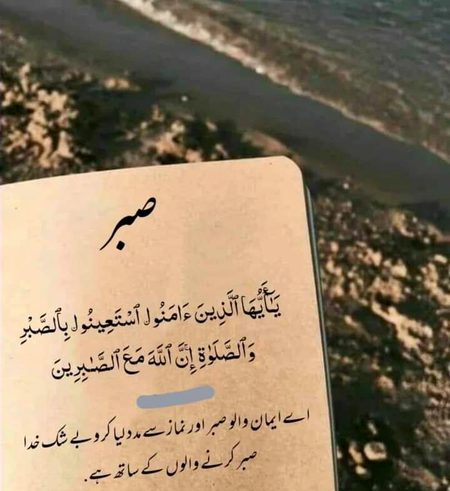 صبر
يَـٰٓأَيُّهَا ٱلَّذِينَ ءَامَنُوا۟ ٱسْتَعِينُوا۟ بِٱلصَّبْرِ
وَٱلصَّلَوٰةِ إِنَّ ٱللَّهَ مَعَ ٱلصَّـٰبِرِينَ
اے ایمان والو صبر اور نماز سے مدد لیا کرو بے شک خدا
صبر کرنے والوں کے ساتھ ہے.